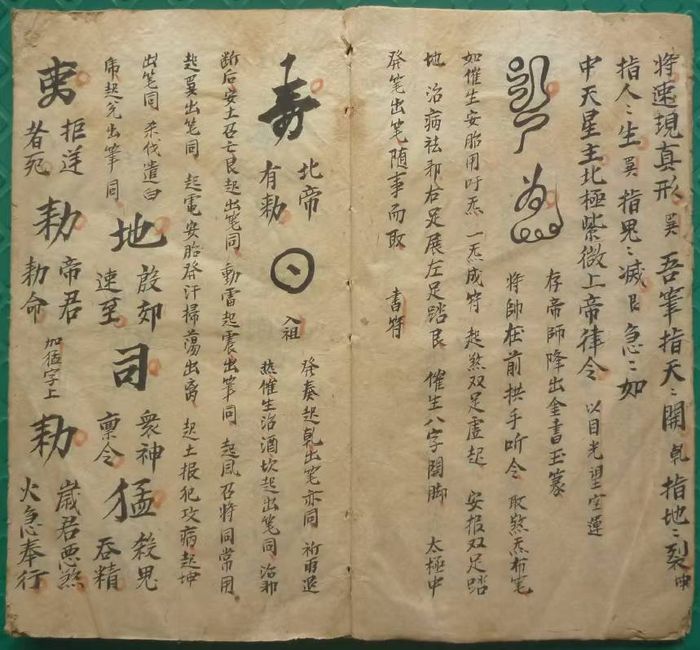 将速現真形 巽 吾筆指天〻開 乾 指地〻裂 坤
指人〻生 巽 指鬼〻滅 艮 急〻如
中天星主北極紫微上帝律令 以目光望空運
存帝師降出金書玉篆
将帥在前拱手听令 取煞炁布笔
如催生安胎用吁炁 一炁成符 起煞双足虚起 安报双足踏
地 治病祛邪右足展左足踏艮 催生八字開脚 太極中
発笔出笔随事而取 書符
壽 北帝有勅
入祖
発奏起乾出笔亦同 祈雨退
热催生治酒坎起出笔同 治邪
断后安土召亡艮起出笔同 動雷起震出笔同 起風召將同常用
起巽出笔同 起電安胎発汗掃蕩出离 起土报犯攻病起坤
出笔同 杀伐遣白
虎起兑出筆同
地 殷郊速至
司 衆神禀令
猛 殺鬼吞精
夷 拒逆者死
勅 帝君勅命
加猛字上
勅 歲君悪煞火急奉行